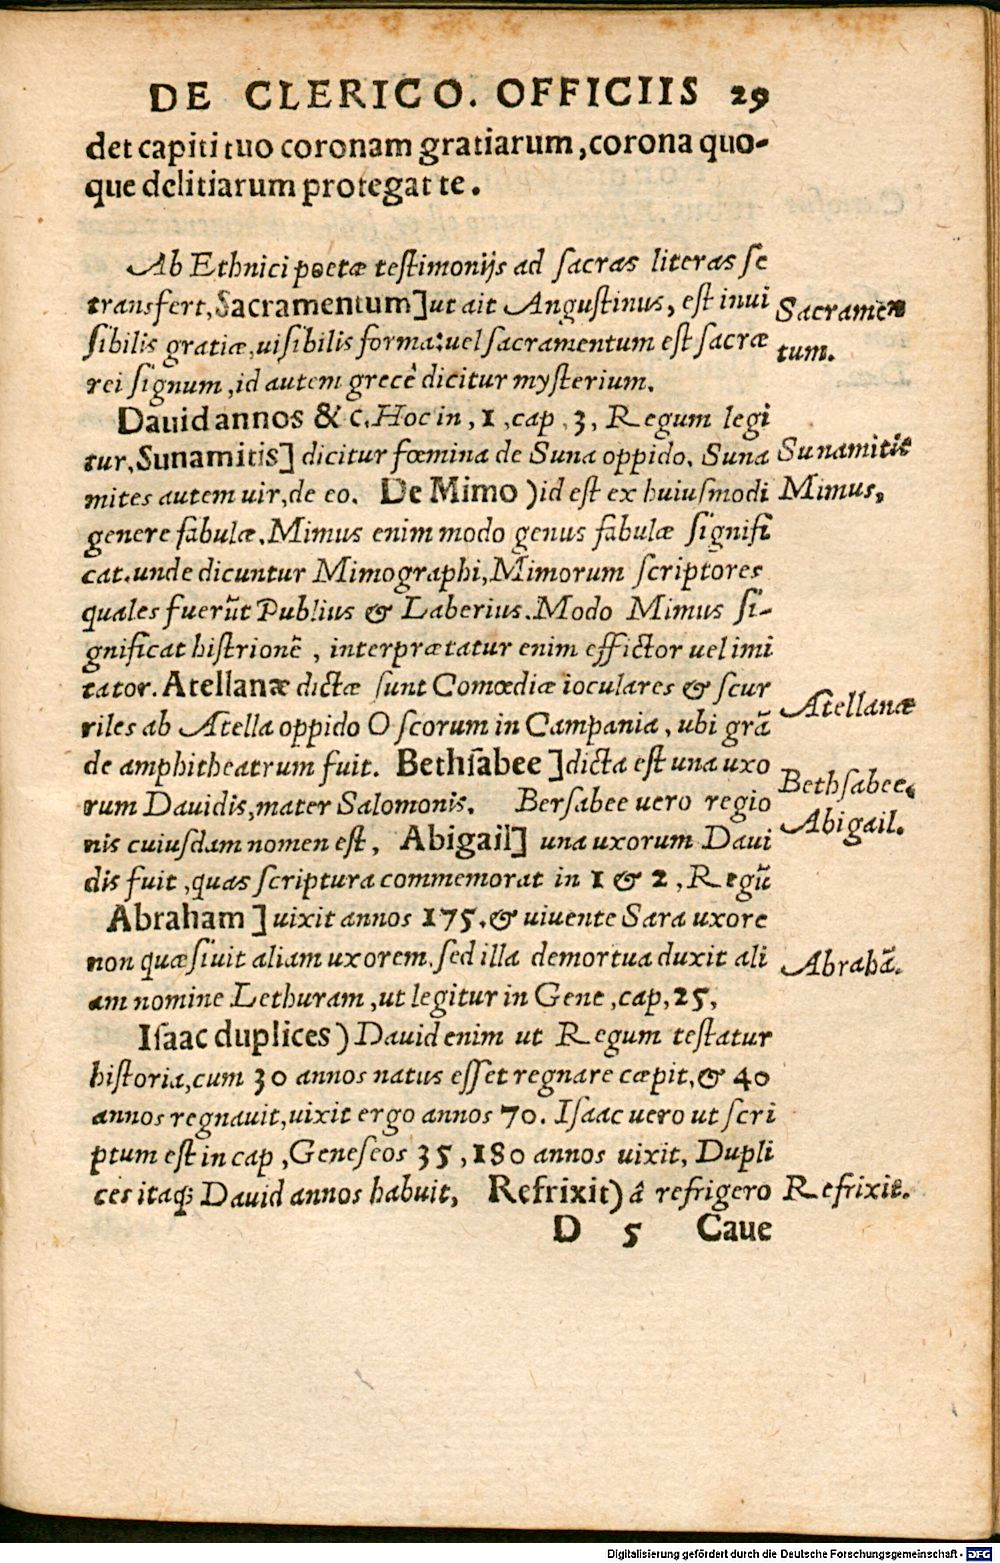 DE CLERICO. OFFICIIS 29
det capiti tuo coronam gratiarum, corona quo-
que delitiarum protegat te.
Ab Ethnici poetæ testimonijs ad sacras literas se
transfert, Sacramentum] ut ait Angustinus, est inui
Sacramēn
sibilis gratiæ, uisibilis forma: uel sacramentum est sacræ
tum.
rei signum, id autem grecè dicitur mysterium.
Dauid annos & c. Hoc in, 1, cap, 3, Regum legi
tur, Sunamitis] dicitur fœmina de Suna oppido. Suna
Sunamitis
mites autem uir, de eo. De Mimo) id est ex huiusmodi
Mimus,
genere fabulæ. Mimus enim modo genus fabulæ signifi
cat. unde dicuntur Mimographi, Mimorum scriptores
quales fuerũt Publius & Laberius. Modo Mimus si-
gnificat histrionē, interprætatur enim effictor uel imi
tator. Atellanæ dictæ sunt Comœdiæ ioculares & scur
Atellanæ
riles ab Atella oppido Oscorum in Campania, ubi grã
de amphitheatrum fuit. Bethsabee] dicta est una uxo
Bethsabee.
rum Dauidis, mater Salomonis. Bersabee uero regio
nis cuiusdam nomen est, Abigail] una uxorum Daui
Abigail.
dis fuit, quas scriptura commemorat in 1 & 2, Regũ
Abraham] uixit annos 175. & uiuente Sara uxore
non quæsiuit aliam uxorem. sed illa demortua duxit ali
Abrahã.
am nomine Lethuram, ut legitur in Gene, cap, 25,
Isaac duplices) Dauid enim ut Regum testatur
historia, cum 30 annos natus esset regnare cæpit, & 40
annos regnauit, uixit ergo annos 70. Isaac uero ut scri
ptum est in cap, Geneseos 35, 180 annos uixit, Dupli
ces itaq; Dauid annos habuit, Refrixit) â refrigero
Refrixit.
D 5 Caue
Digitalisierung gefördert durch die Deutsche Forschungsgemeinschaft - DFG